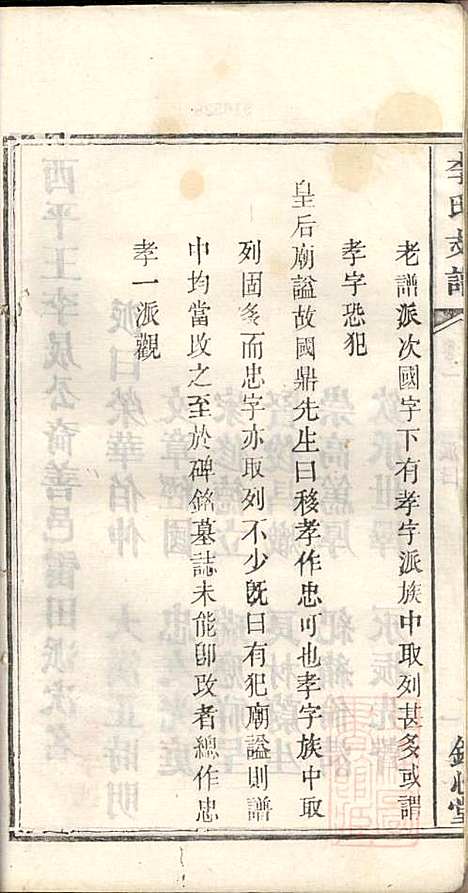 李氏支譜
老譜派次國字下有孝字派族中取列甚多或謂
孝字恐犯
皇后廟謚故國鼎先生曰移孝作忠可也孝字族中取
列固多而忠字亦取列不少既曰有犯廟謚則譜
中均當改之至於碑銘墓誌未能卽改者總作忠
孝一派觀